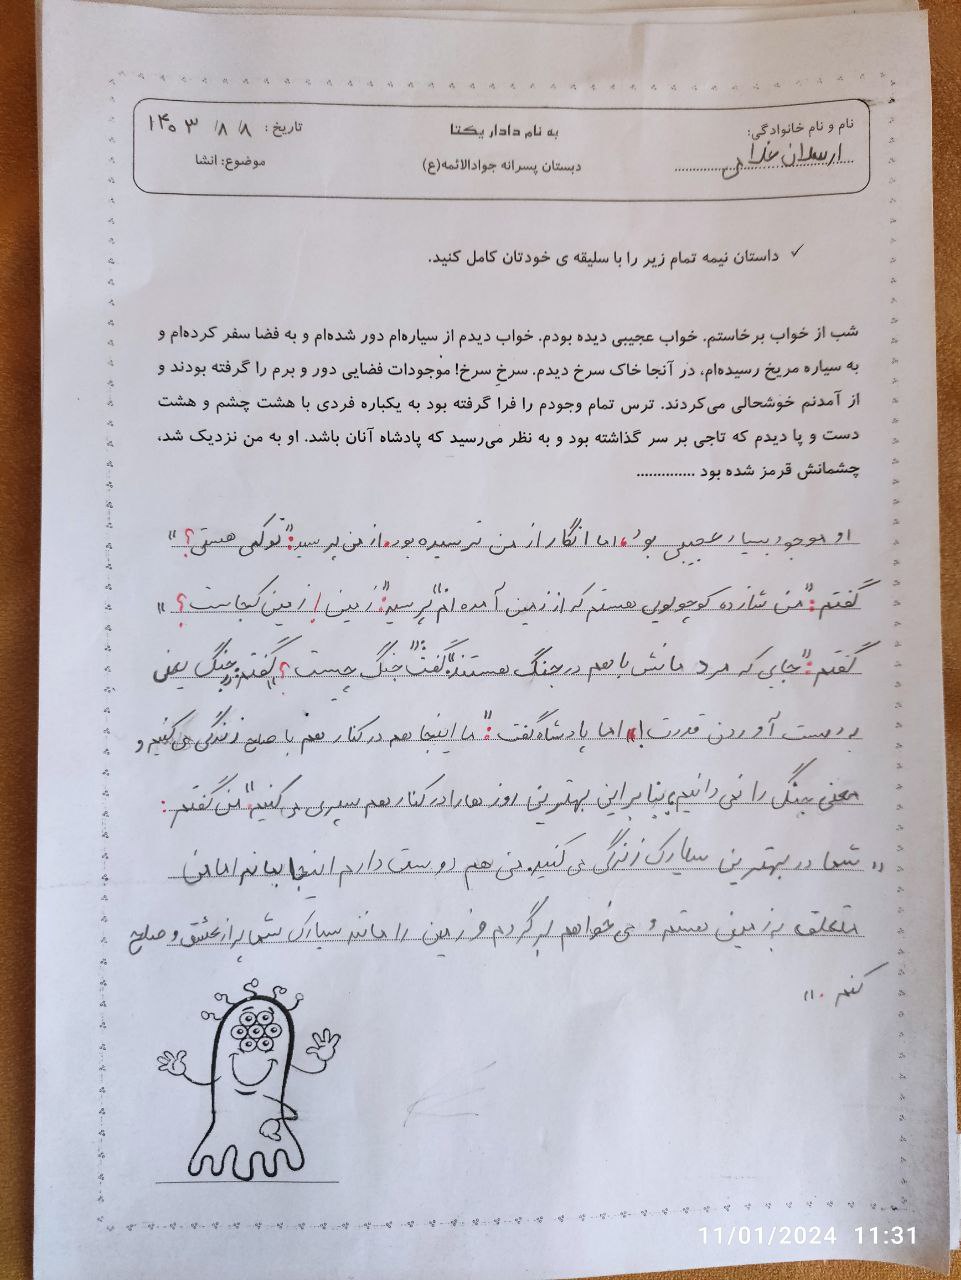 به نام دادار یکتا
نام و نام خانوادگی: ارسلان غلامی
تاریخ: ۱۴۰۳/۸/۸
دبستان پسرانه جوادالائمه(ع)
موضوع: انشا
✓ داستان نیمه تمام زیر را با سلیقه ی خودتان کامل کنید.
شب از خواب برخاستم. خواب عجیبی دیده بودم. خواب دیدم از سیاره‌ام دور شده‌ام و به فضا سفر کرده‌ام و
به سیاره مریخ رسیده‌ام، در آنجا خاک سرخ دیدم. سرخِ سرخ! موجودات فضایی دور و برم را گرفته بودند و
از آمدنم خوشحالی می‌کردند. ترس تمام وجودم را فرا گرفته بود به یکباره فردی با هشت چشم و هشت
دست و پا دیدم که تاجی بر سر گذاشته بود و به نظر می‌رسید که پادشاه آنان باشد. او به من نزدیک شد،
چشمانش قرمز شده بود ..............
او موجود بسیار عجیبی بود، اما انگار از من ترسیده بود. از من پرسید: "تو کی هستی؟"
گفتم: "من شازده کوچولویی هستم که از زمین آمده ام" پرسید: "زمین! زمین کجاست؟"
گفتم: "جایی که مردمانش با هم در جنگ هستند." گفت: "جنگ چیست؟" گفتم: "جنگ یعنی
به دست آوردن قدرت!" اما پادشاه گفت: "ما اینجا هم در کنار هم با صلح زندگی می کنیم و
معنی جنگ را نمی دانیم، بنابراین بهترین روز ها را در کنار هم سپری می کنیم." من گفتم:
"شما در بهترین سیاره زندگی می کنید. من هم دوست دارم اینجا بمانم اما من
متعلق به زمین هستم و می خواهم برگردم و زمین را مانند سیاره ی شما پر از عشق و صلح
کنم."
11/01/2024 11:31